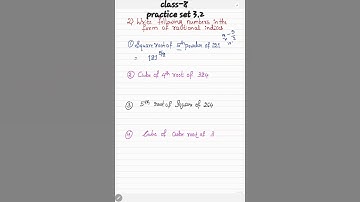 class-8
practice set 3.2
2) Write following numbers in the
form of rational indices
① Square root of 5th power of 121
= 121^5/2
② Cube of 4th root of 324
③ 5th root of square of 264
④ Cube of cube root of 3